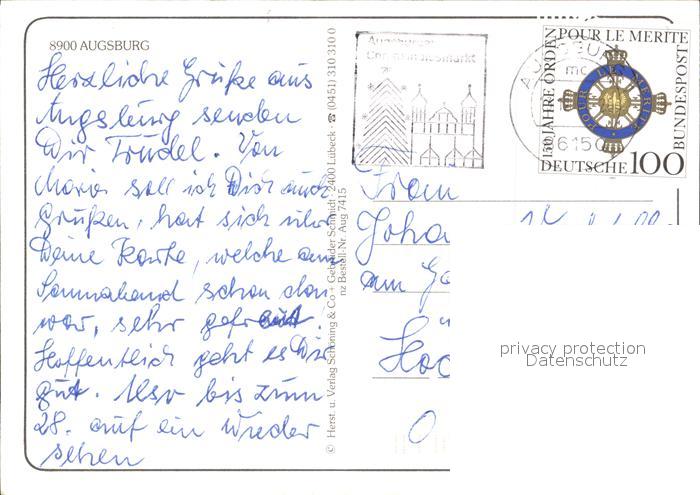 8900 AUGSBURG
Herzliche Grüße aus
Augsburg senden
Dir Trudel. Von
Maria soll ich Dich auch
Grüßen, hat sich über
Deine Karte, welche am
Sonnabend schon da
war, sehr gefreut.
Hoffentlich geht es Dir
gut. Also bis zum
28. auf ein Wieder
sehen
© Herst. u. Verlag Schöning & Co + Gebrüder Schmidt · 2400 Lübeck · ☎ (04 51) 310 310 0
nz Bestell-Nr. Aug 7415
Augsburger
Christkindlesmarkt
AUGSBURG
mc
86150
150 JAHRE ORDEN POUR LE MERITE
DEUTSCHE BUNDESPOST
100
POUR LE MERITE
Frau
Joha
am
Hoc
privacy protection
Datenschutz